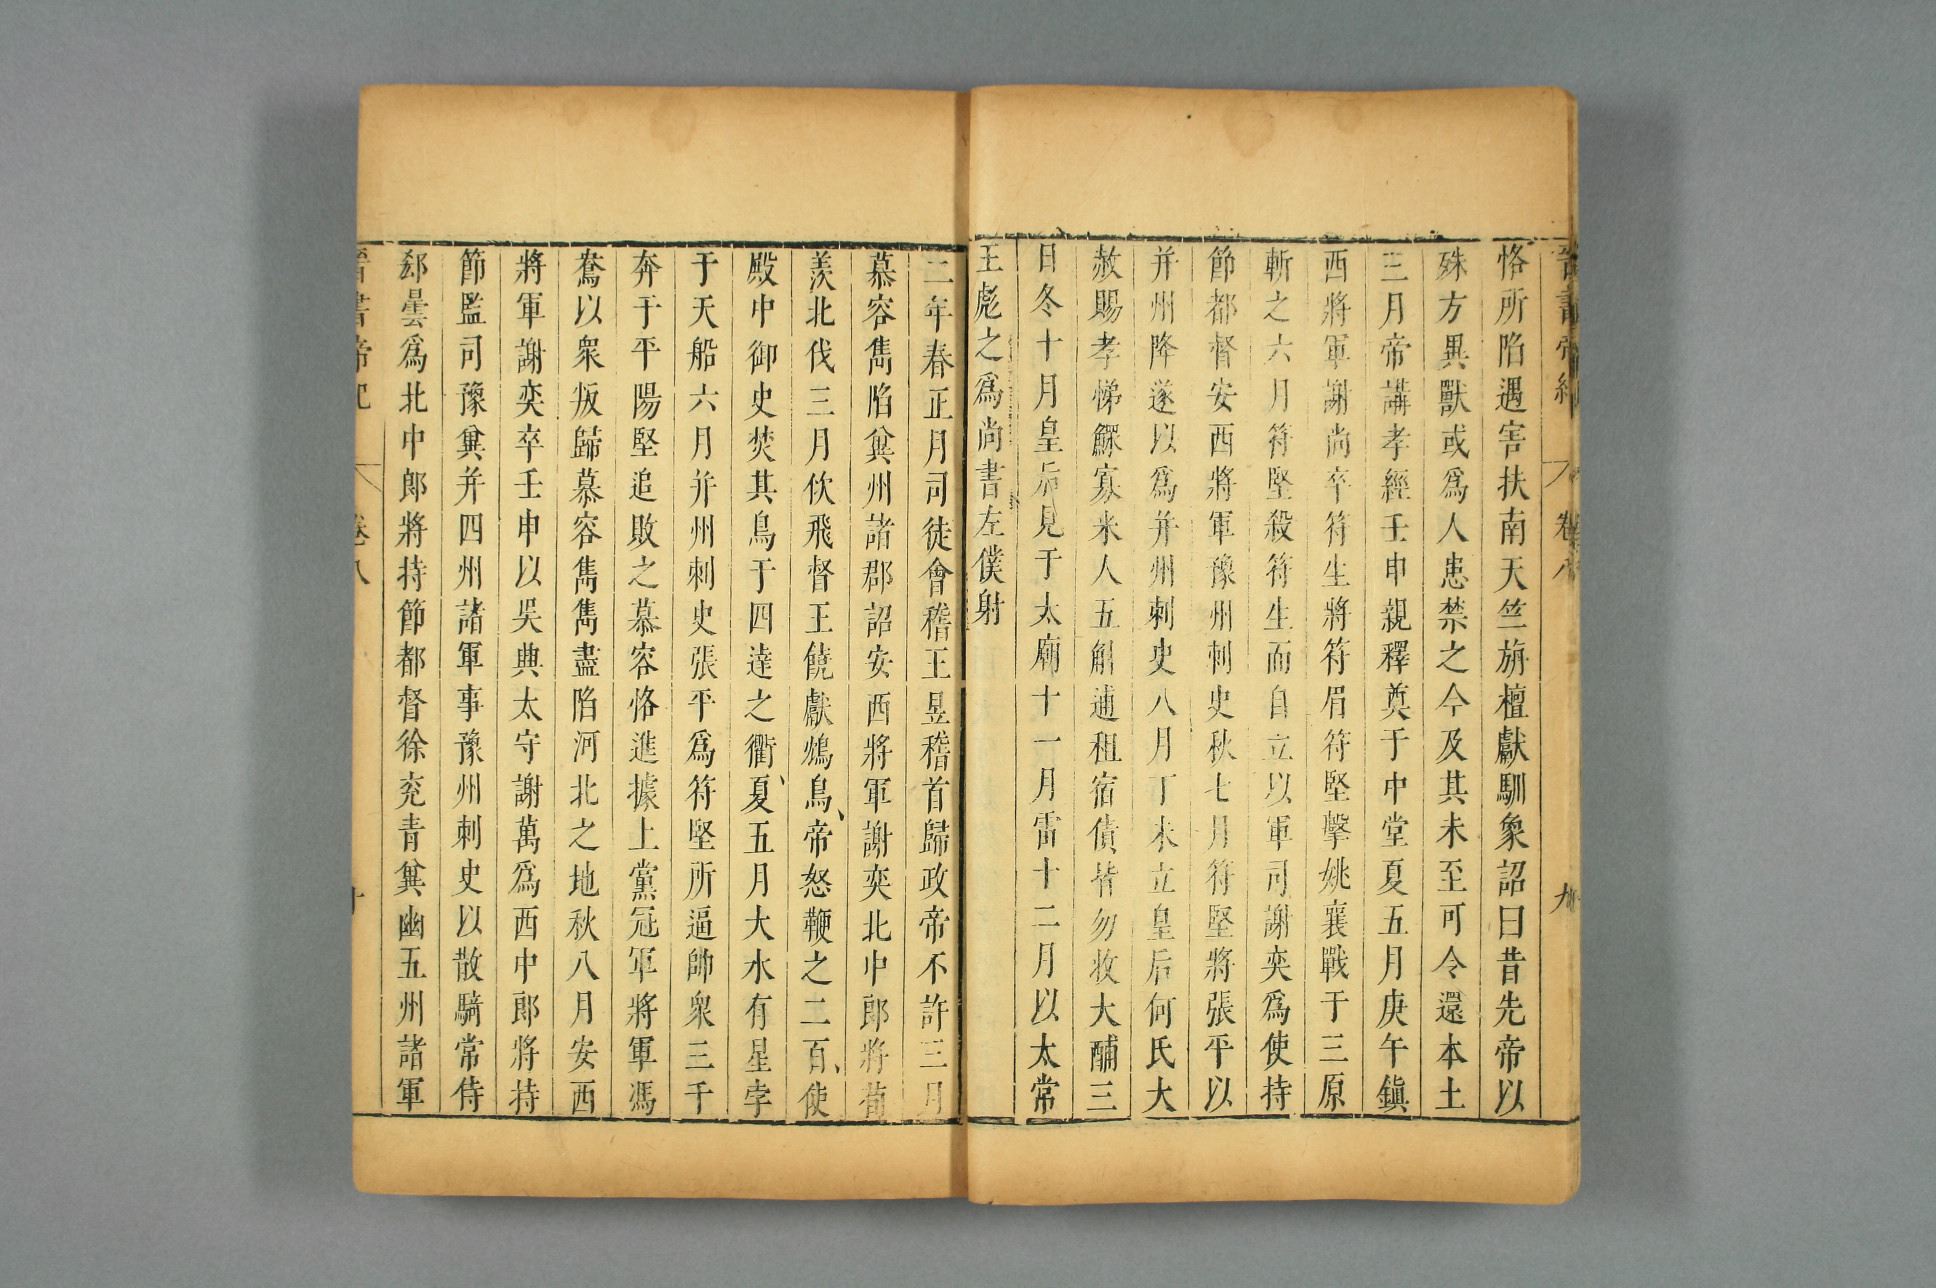 晉書帝紀 卷八 九
恪所陷遇害扶南天竺旃檀獻馴象詔曰昔先帝以
殊方異獸或爲人患禁之今及其未至可令還本土
三月帝講孝經壬申親釋奠于中堂夏五月庚午鎭
西將軍謝尚卒符生將符眉符堅擊姚襄戰于三原
斬之六月符堅殺符生而自立以軍司謝奕爲使持
節都督安西將軍豫州刺史秋七月符堅將張平以
并州降遂以爲并州刺史八月丁未立皇后何氏大
赦賜孝悌鰥寡米人五斛逋租宿債皆勿收大酺三
日冬十月皇后見于太廟十一月雷十二月以太常
王彪之爲尚書左僕射
二年春正月司徒會稽王昱稽首歸政帝不許三月
慕容雋陷兾州諸郡詔安西將軍謝奕北中郎將荀
羨北伐三月佽飛督王饒獻鴆鳥帝怒鞭之二百使
殿中御史焚其鳥于四達之衢夏五月大水有星孛
于天船六月并州刺史張平爲符堅所逼帥衆三千
奔于平陽堅追敗之慕容恪進據上黨冠軍將軍馮
鴦以衆叛歸慕容雋雋盡陷河北之地秋八月安西
將軍謝奕卒壬申以吳興太守謝萬爲西中郎將持
節監司豫兾并四州諸軍事豫州刺史以散騎常侍
郄曇爲北中郎將持節都督徐兗青兾幽五州諸軍
晉書帝紀 卷八 十